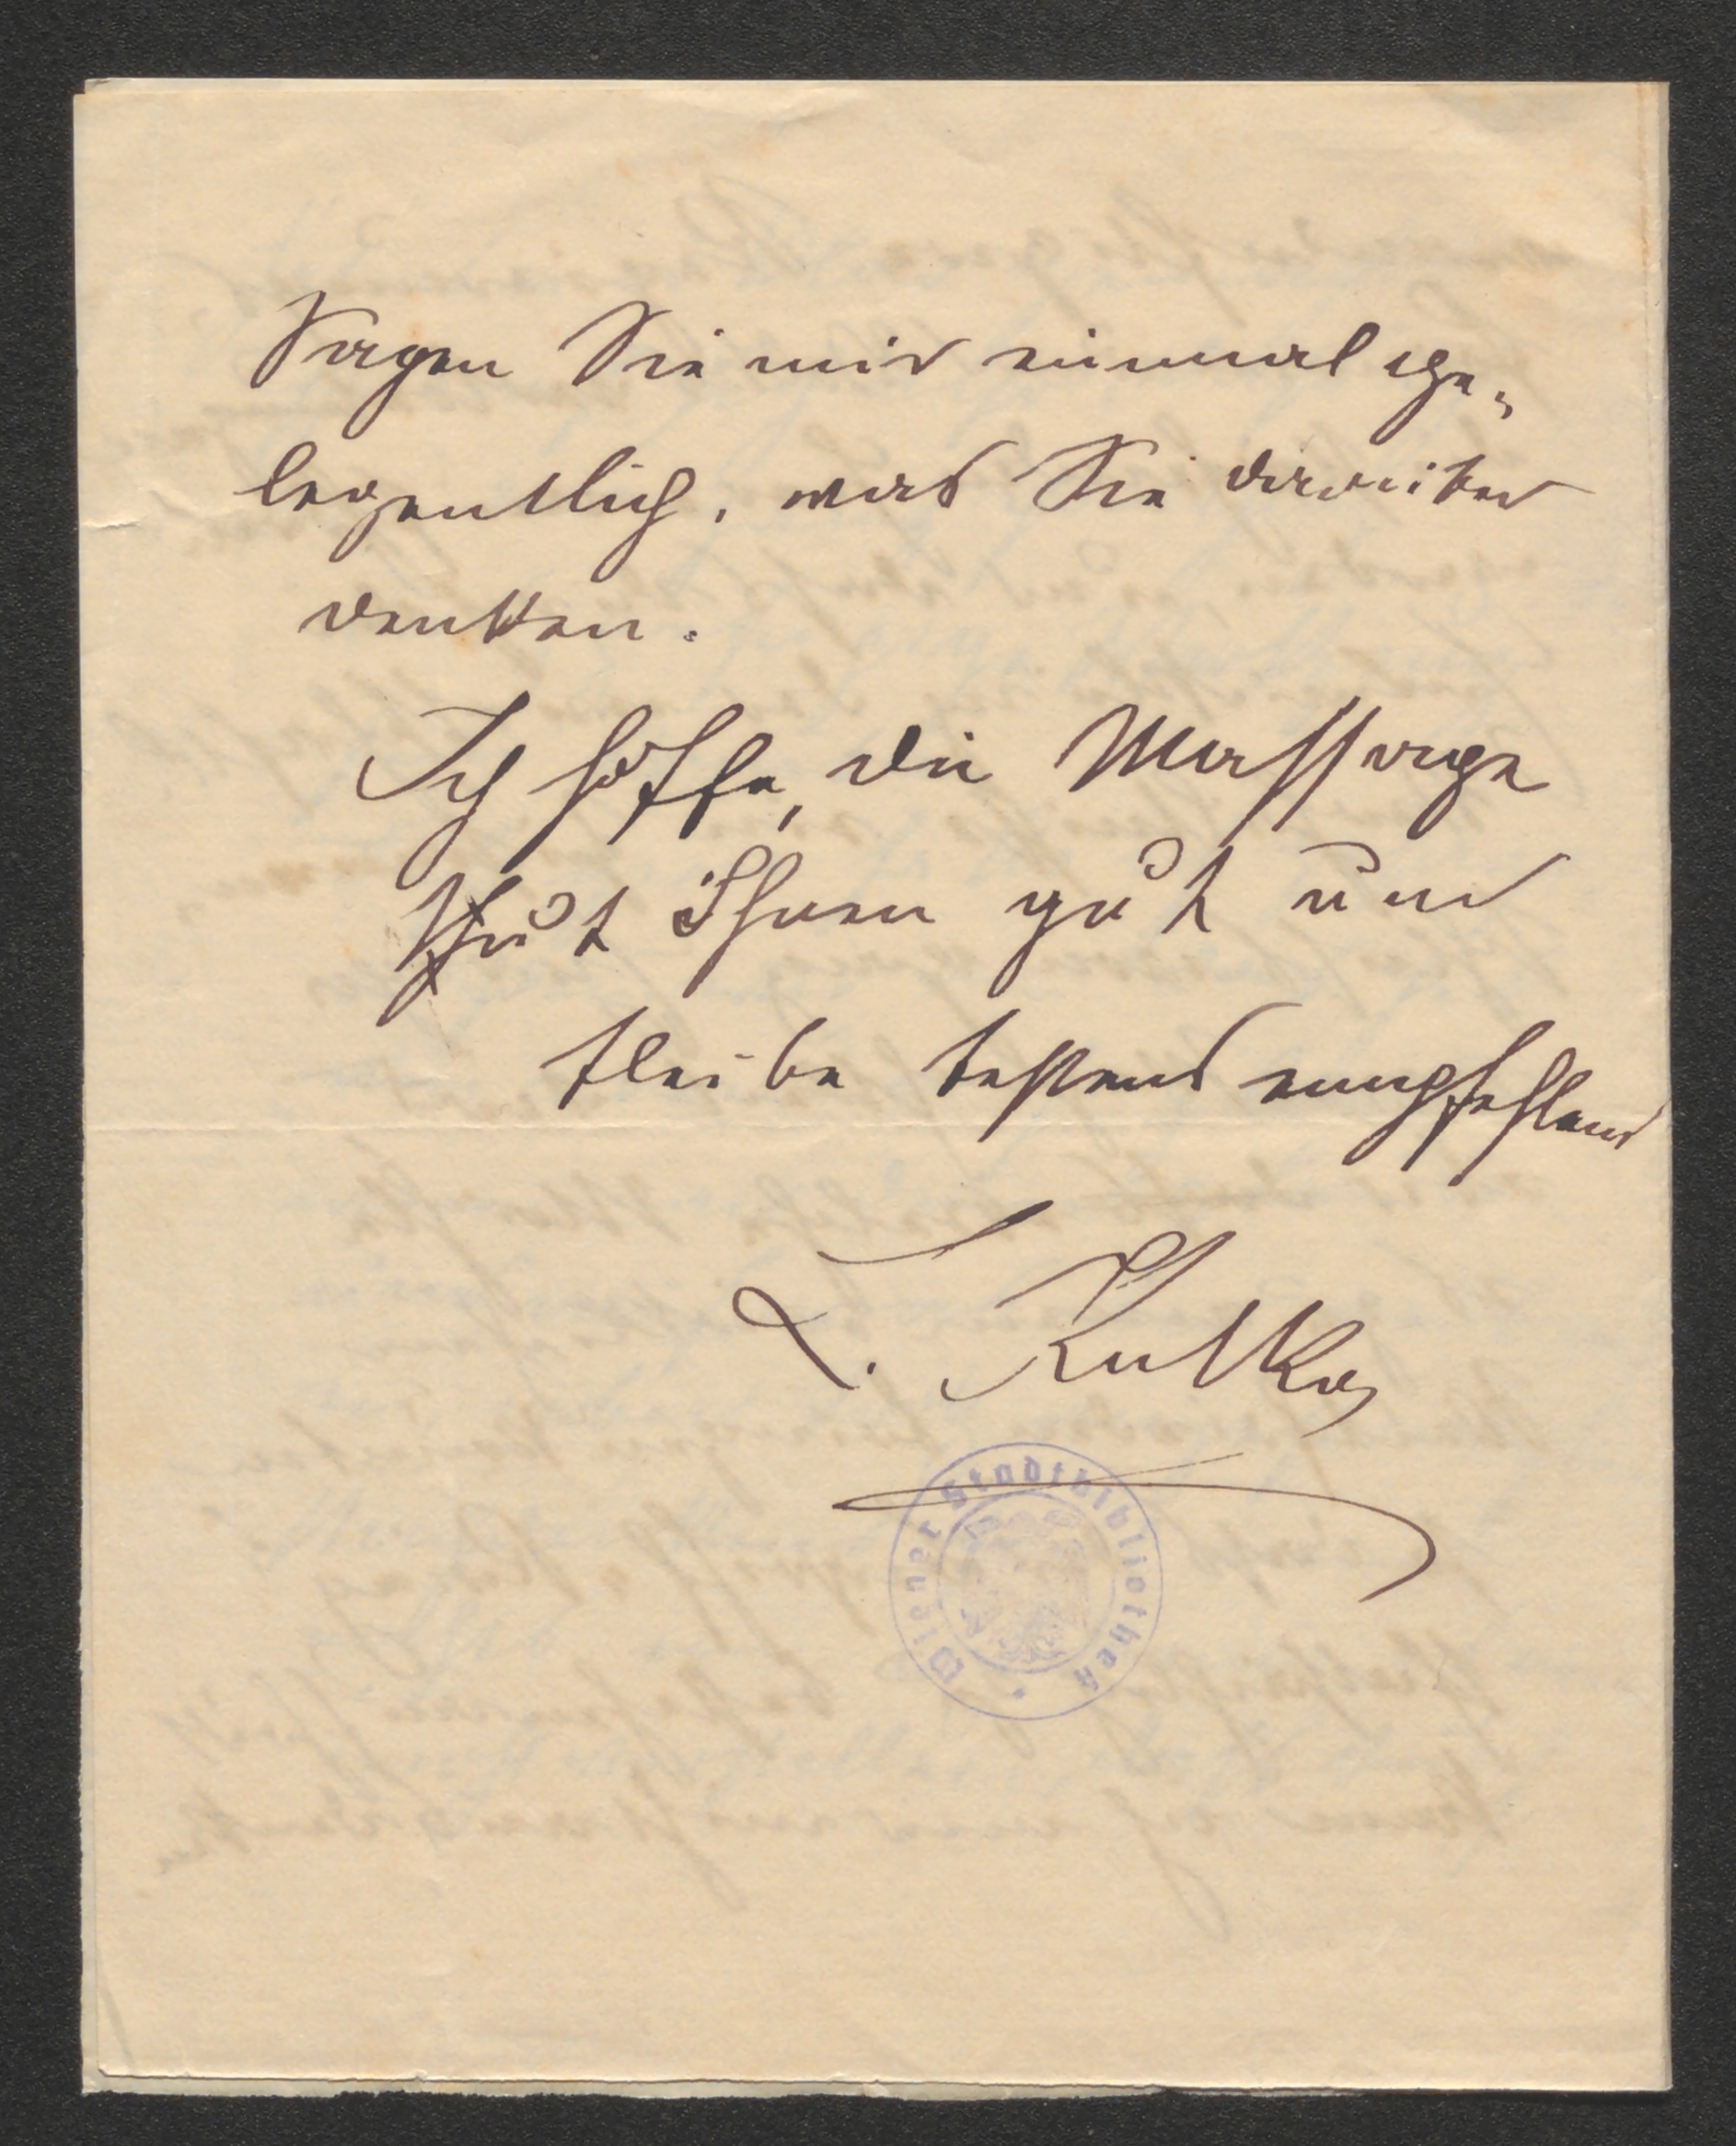 Sagen Sie mir einmal ge-
legentlich, was Sie darüber
denken.
Ich hoffe, die Massage
thut Ihnen gut und
bleibe bestens empfehlend
L.
Wiener Stadtbibliothek